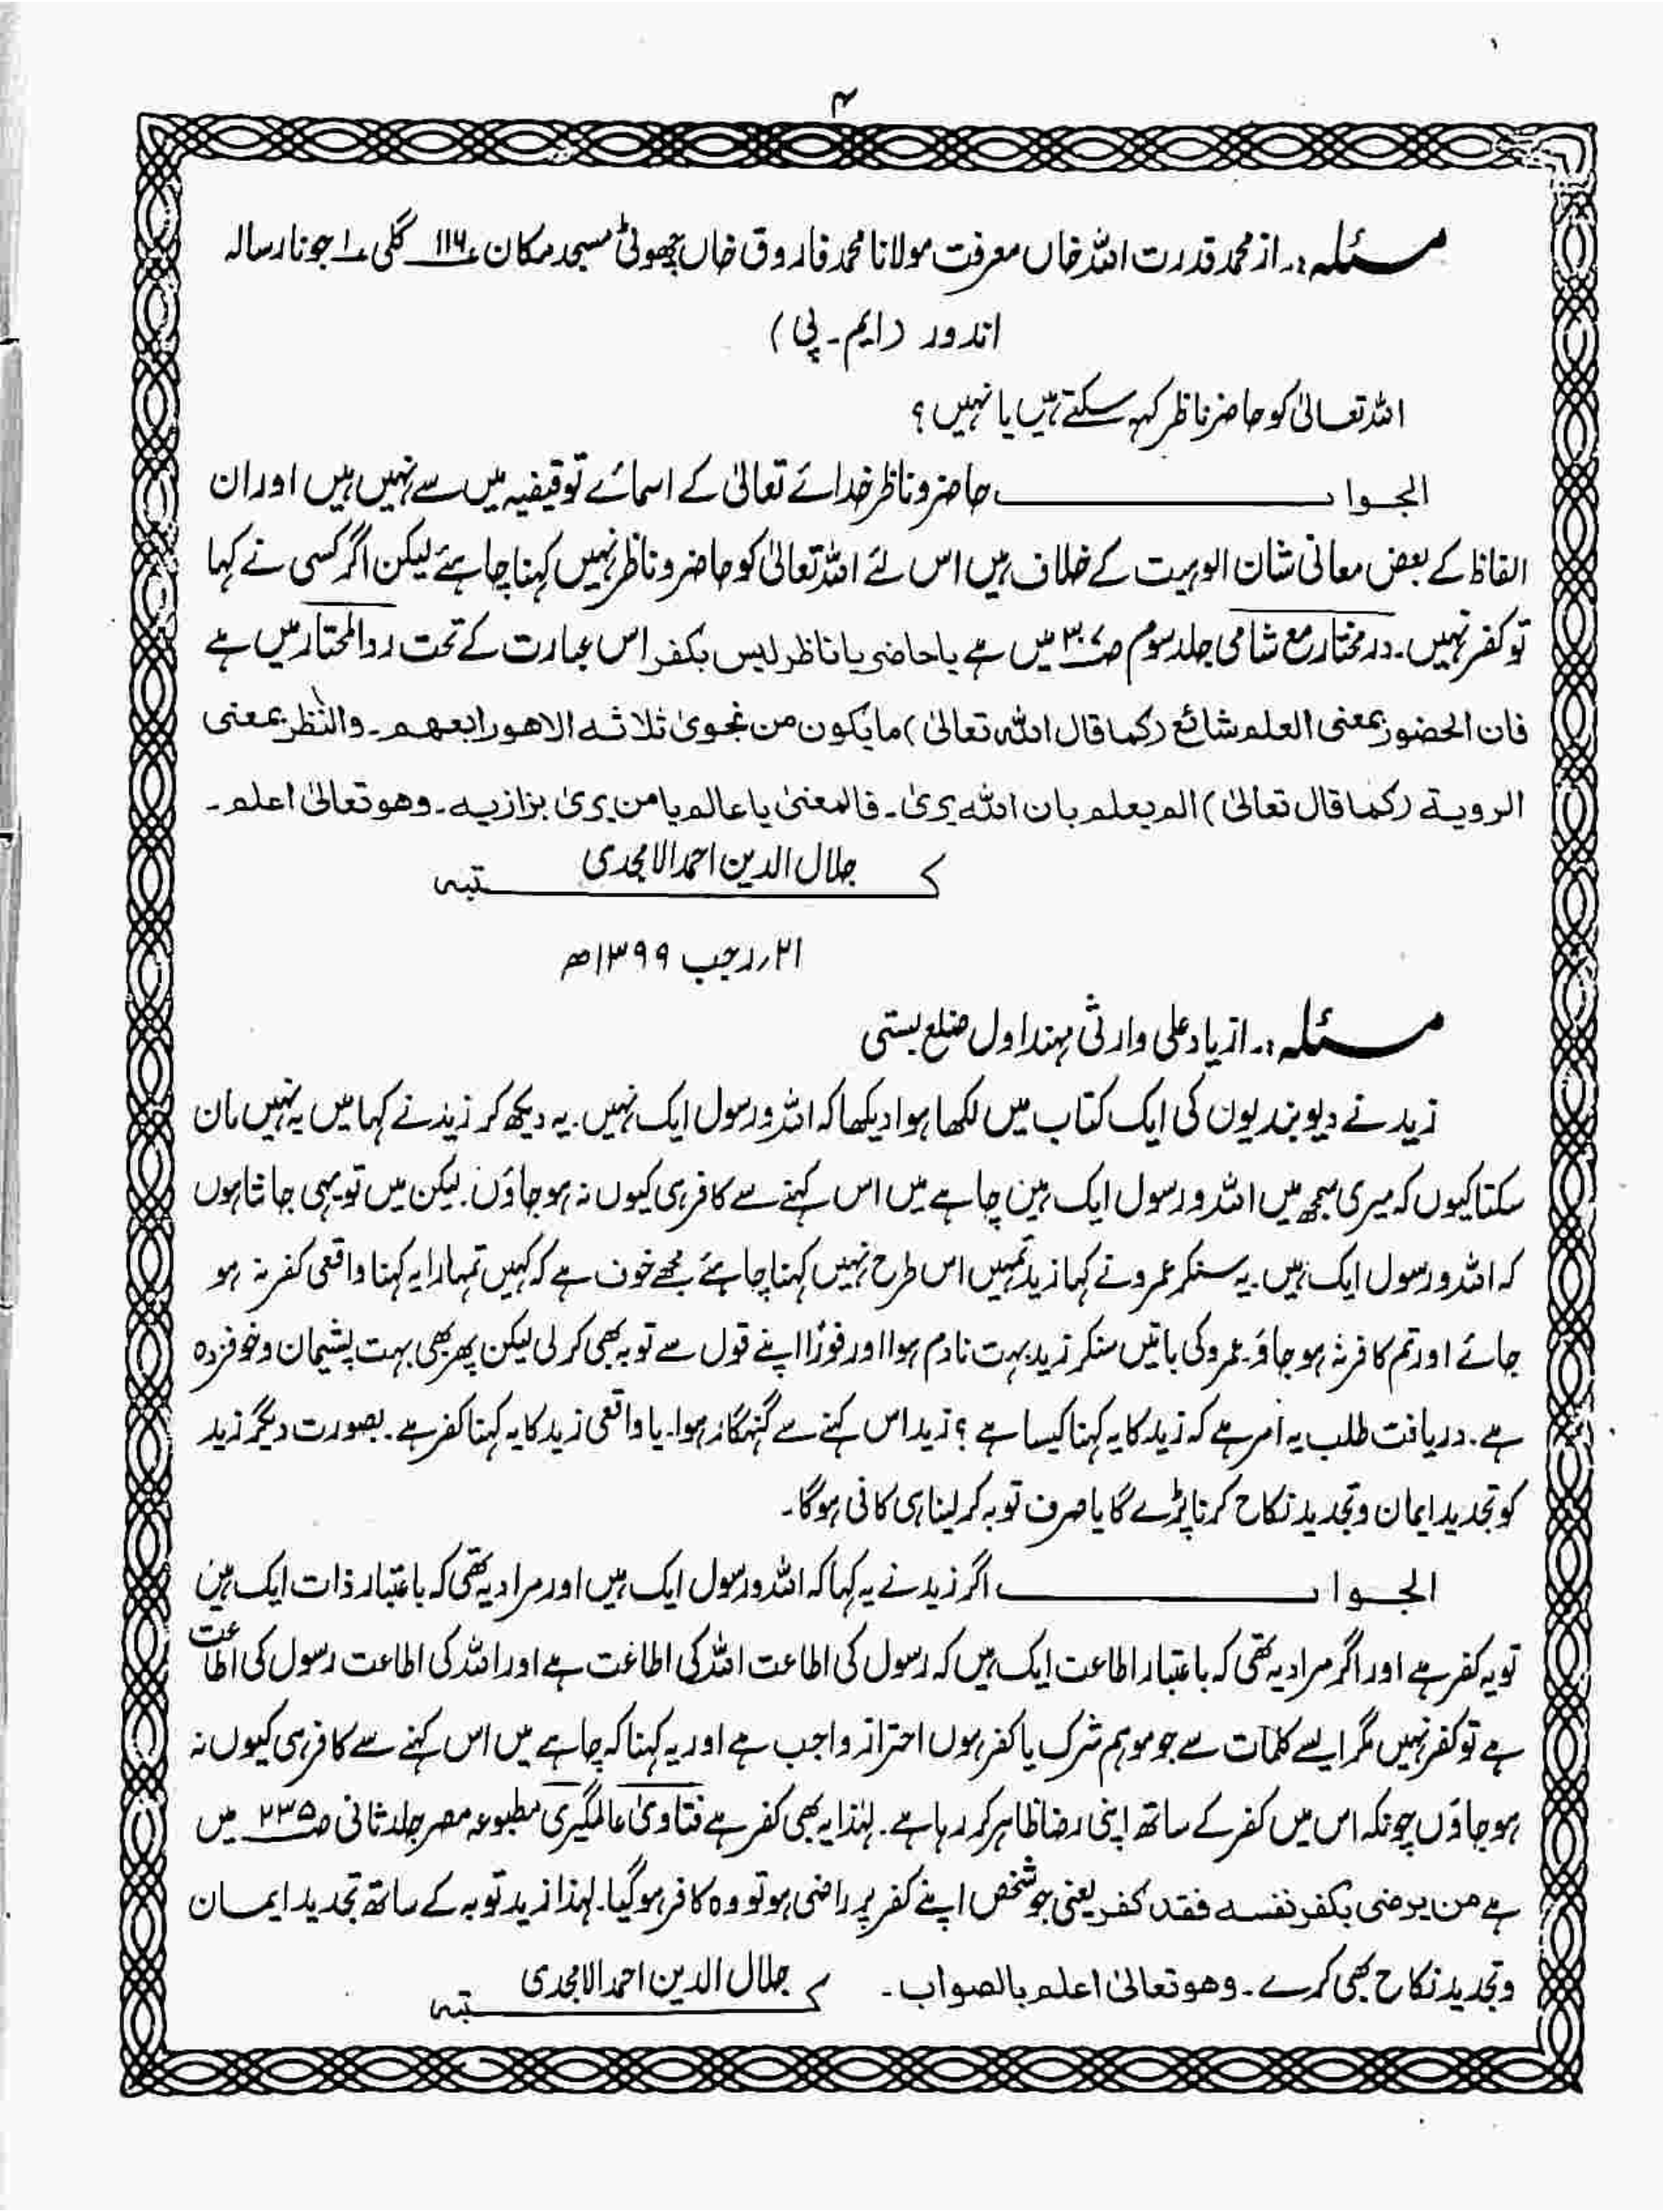 ۴
مسئلہ:۔ از محمد قدرت اللہ خاں معرفت مولانا محمد فاروق خاں چھوٹی مسجد مکان ۱۱۶ گلی ۱ جونا رسالہ
اندور (ایم۔ پی)
اللہ تعالیٰ کو حاضر ناظر کہہ سکتے ہیں یا نہیں ؟
الجواب حاضر و ناظر خدائے تعالیٰ کے اسمائے توقیفیہ میں سے نہیں ہیں اور ان
الفاظ کے بعض معانی شان الوہیت کے خلاف ہیں اس لئے اللہ تعالیٰ کو حاضر و ناظر نہیں کہنا چاہئے لیکن اگر کسی نے کہا
تو کفر نہیں۔ درمختار مع شامی جلد سوم ص۳۰۷ میں ہے یا حاضر یا ناظر لیس بکفر اس عبارت کے تحت ردالمحتار میں ہے
فان الحضور بمعنی العلم شائع (کما قال اللہ تعالیٰ) مایکون من نجویٰ ثلاثۃ الا ھو رابعھم۔ والنظر بمعنی
الرویۃ (کما قال تعالیٰ) الم یعلم بان اللہ یریٰ۔ فالمعنیٰ یا عالم یا من یریٰ بزازیہ۔ وھو تعالیٰ اعلم۔
کتبہ جلال الدین احمد الامجدی
۲۱؍رجب ۱۳۹۹ھ
مسئلہ:۔ از یاد علی وارثی مہنداول ضلع بستی
زید نے دیوبندیوں کی ایک کتاب میں لکھا ہوا دیکھا کہ اللہ و رسول ایک نہیں۔ یہ دیکھ کر زید نے کہا میں یہ نہیں مان
سکتا کیوں کہ میری سمجھ میں اللہ و رسول ایک ہیں چاہے میں اس کہنے سے کافر ہی کیوں نہ ہو جاؤں۔ لیکن میں تو یہی جانتا ہوں
کہ اللہ و رسول ایک ہیں۔ یہ سنکر عمرو نے کہا زید تمہیں اس طرح نہیں کہنا چاہئے مجھے خوف ہے کہ کہیں تمہارا یہ کہنا واقعی کفر نہ ہو
جائے اور تم کافر نہ ہو جاؤ۔ عمرو کی باتیں سنکر زید بہت نادم ہوا اور فوراً اپنے قول سے توبہ بھی کر لی لیکن پھر بھی بہت پشیمان و خوفزدہ
ہے۔ دریافت طلب یہ امر ہے کہ زید کا یہ کہنا کیسا ہے ؟ زید اس کہنے سے گنہگار ہوا۔ یا واقعی زید کا یہ کہنا کفر ہے۔ بصورت دیگر زید
کو تجدید ایمان و تجدید نکاح کرنا پڑے گا یا صرف توبہ کر لینا ہی کافی ہوگا۔
الجواب اگر زید نے یہ کہا کہ اللہ و رسول ایک ہیں اور مراد یہ تھی کہ باعتبار ذات ایک ہیں
تو یہ کفر ہے اور اگر مراد یہ تھی کہ باعتبار اطاعت ایک ہیں کہ رسول کی اطاعت اللہ کی اطاعت ہے اور اللہ کی اطاعت رسول کی اطاعت
ہے تو کفر نہیں مگر ایسے کلمات سے جو موہم شرک یا کفر ہوں احتراز واجب ہے اور یہ کہنا کہ چاہے میں اس کہنے سے کافر ہی کیوں نہ
ہو جاؤں چونکہ اس میں کفر کے ساتھ اپنی رضا ظاہر کر رہا ہے۔ لہٰذا یہ بھی کفر ہے فتاویٰ عالمگیری مطبوعہ مصر جلد ثانی ص۲۳۵ میں
ہے من یرضی بکفر نفسہ فقد کفر یعنی جو شخص اپنے کفر پر راضی ہو تو وہ کافر ہو گیا۔ لہذا زید توبہ کے ساتھ تجدید ایمان
و تجدید نکاح بھی کرے۔ وھو تعالیٰ اعلم بالصواب۔ کتبہ جلال الدین احمد الامجدی